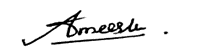 Ameesh .